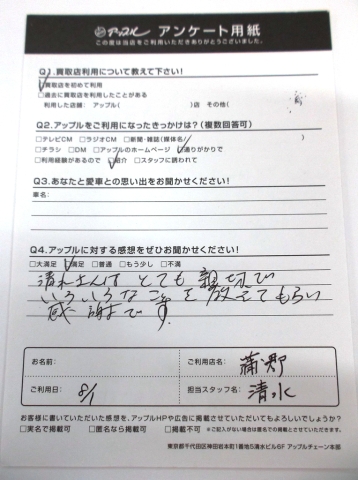 アップル アンケート用紙
この度は当店をご利用いただきありがとうございました。
Q1.買取店利用について教えて下さい!
□買取店を初めて利用
□過去に買取店を利用したことがある
利用した店舗: アップル( )店 その他( )
Q2.アップルをご利用になったきっかけは?(複数回答可)
□テレビCM □ラジオCM □新聞・雑誌(媒体名/ )
□チラシ □DM □アップルのホームページ □通りがかりで
□利用経験があるので □紹介 □スタッフに誘われて
Q3.あなたと愛車との思い出をお聞かせください!
車名:
Q4.アップルに対する感想をぜひお聞かせください!
□大満足 □満足 □普通 □もう少し □不満
清水さんは とても 親切で
いろいろな こと を 教えてもらい
感謝です。
お名前:
ご利用店名: 蒲郡
ご利用日: 8/1
担当スタッフ名: 清水
お客様に書いていただいた感想を、アップルHPや広告に掲載させていただいてもよろしいでしょうか?
□実名で掲載可 □匿名なら掲載可 □掲載不可 ※ご記入がない場合は匿名での掲載とさせていただきます。
東京都千代田区神田岩本町1番地5清水ビル6F アップルチェーン本部